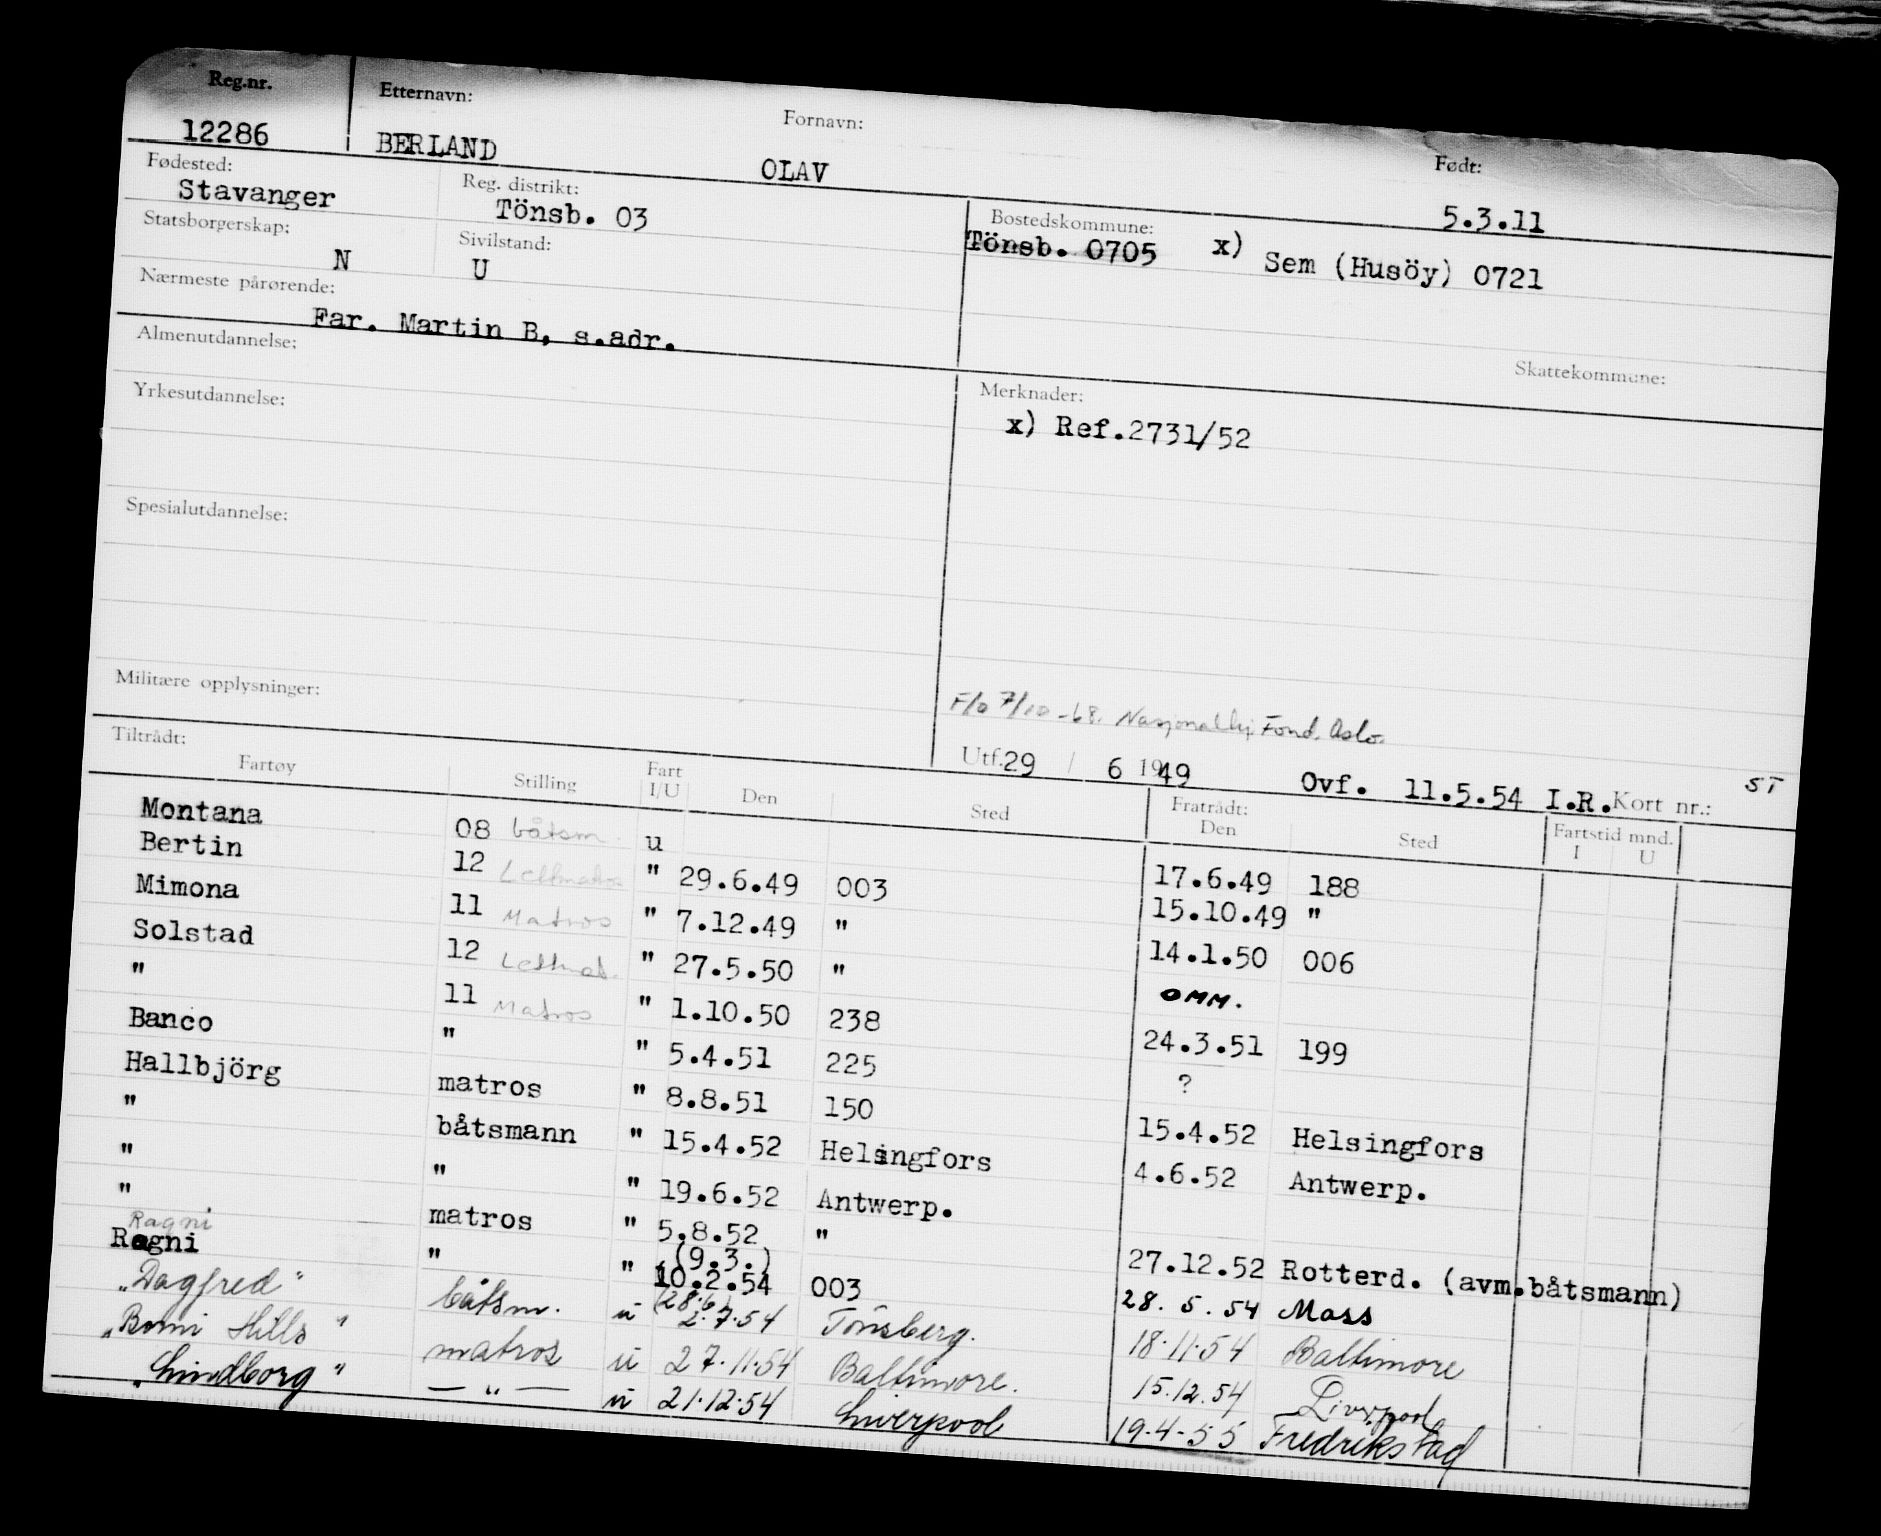 Reg.nr. Etternavn: Fornavn: Født:
12286 BERLAND OLAV 5.3.11
Fødested: Reg. distrikt: Bostedskommune:
Stavanger Tönsb. 03 Tönsb. 0705 x) Sem (Husöy) 0721
Statsborgerskap: Sivilstand:
N U
Nærmeste pårørende:
Far. Martin B, s.adr.
Almenutdannelse: Skattekommune:
Yrkesutdannelse: Merknader:
x) Ref.2731/52
Spesialutdannelse:
Militære opplysninger:
F/o 7/10-68. Fond. Oslo.
Tiltrådt: Utf. 29 / 6 1949 Ovf. 11.5.54 I.R. Kort nr.: ST
Fartøy Stilling Fart I/U Den Sted Fratrådt: Den Sted Fartstid mnd. I U
Montana 08 båtsm. u 17.6.49 188
Bertin 12 Lettmatros " 29.6.49 003 15.10.49 "
Mimona 11 Matros " 7.12.49 " 14.1.50 006
Solstad 12 Lettmat. " 27.5.50 " OMM.
" 11 Matros " 1.10.50 238 24.3.51 199
Banco " " 5.4.51 225 ?
Hallbjörg matros " 8.8.51 150 15.4.52 Helsingfors
" båtsmann " 15.4.52 Helsingfors 4.6.52 Antwerp.
" " " 19.6.52 Antwerp.
" matros " 5.8.52 " 27.12.52 Rotterd. (avm.båtsmann)
Ragni
Ragni " " (9.3.) 10.2.54 003 28.5.54 Moss
"Dagfred" båtsm. u (28.6) 2.7.54 Tönsberg. 18.11.54 Baltimore
"Bomi Hills" matros u 27.11.54 Baltimore. 15.12.54 Liverpool
"Lindborg" — " — u 21.12.54 Liverpool 19.4-55 Fredrikstad